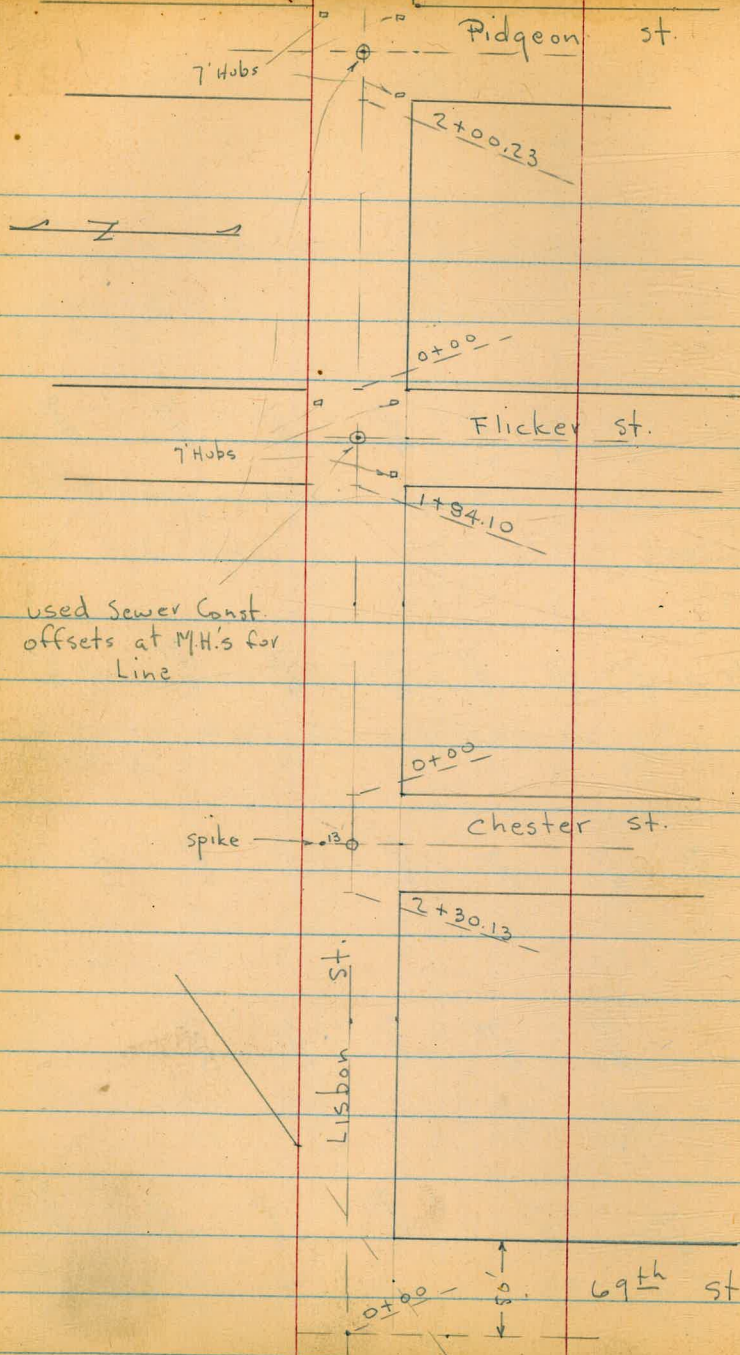 Pidgeon st.
7' Hubs
2+00.23
Z
0+00
Flicker st.
7' Hubs
1+84.10
used Sewer Const.
offsets at M.H.'s for
Line
0+00
Chester st.
spike .13
2+30.13
Lisbon st.
0+00
69th st